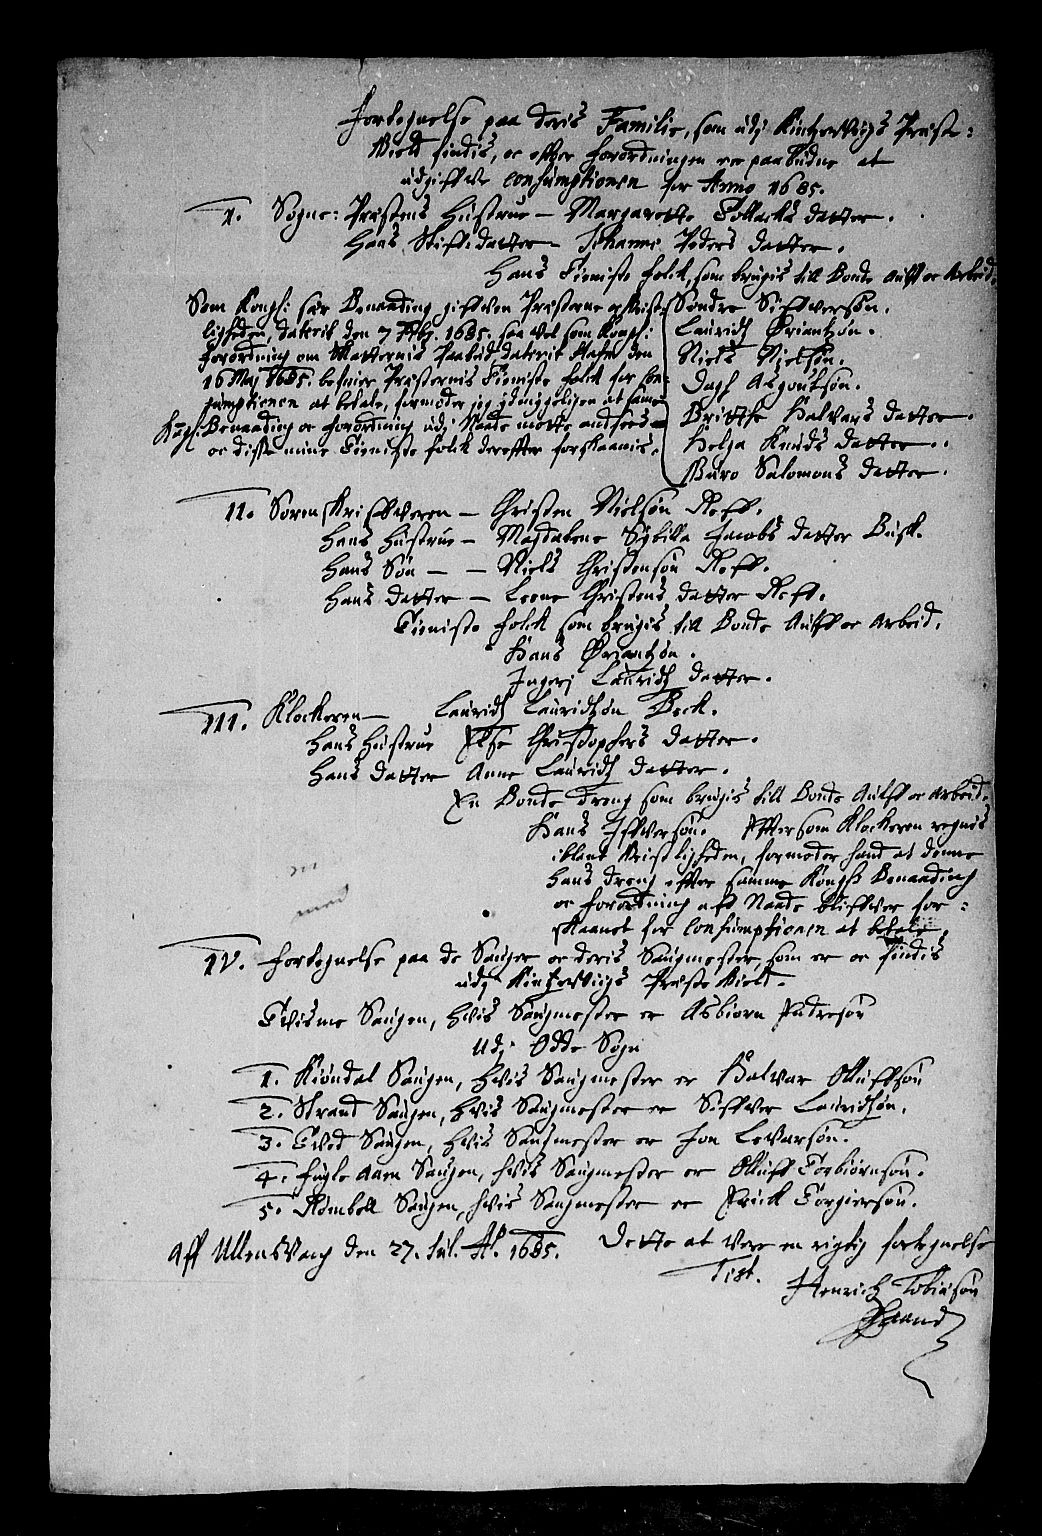 Fortegnelse paa deris Familie, som udj Kintzervigs Præste-
Gield findis, oc efter forordningen ere paabudne at
udgiffve Consumptionen for Anno 1685.
I. Sogne-Præstens Hustrue - Margarette Follachs datter.
Hans Stifdatter - Johanne Peders datter.
Hans Tieniste folck, som brugis till Bonde Aufl oc Arbeid.
Som Kongl: sær Benaading gifven Præsterne
ligheden, daterit den 7 1685, saa vel som Kongl:
forordning om daterit den
16 Maj 1685. befrier Præsternis Tieniste folck for Con-
sumptionen at betale, formoder jeg ydmygeligen at samme
Kongl: Benaading oc forordning udj Naade motte ansees
oc disse mine Tieniste folck derefter forskaanis.
Sondre Siffversøn.
Lauridtz Ørjantsøn.
Niels Nielsøn.
Dagf Asgoutsøn.
Britthe Halvars datter.
Helga Knuds datter.
Guro Salomons datter.
II. Sorenskriffveren - Christen Nielsøn Roff.
Hans Hustrue - Magdalene Sybilla Jacobs datter Busk.
Hans Søn - - Niels Christensøn Roff.
Hans datter - Leene Christens datter Roff.
Tieniste folck som brugis till Bonde Aufl oc Arbeid.
Hans Ørjantsøn.
Ingerj Lauridtz datter.
III. Klockeren - Lauridtz Lauridtzøn Beck.
Hans Hustrue Else Christophers datter.
Hans datter Anne Lauridtz datter.
En Bonde dreng som brugis till Bonde Aufl oc Arbeid.
Hans Iffversøn. Efftersom Klockeren regnis
iblant Geistligheden, formoder hand at denne
hans dreng efter samme Kongl Benaading
oc forordning aff Naade bliffver for-
skaanet for Consumptionen at betale.
IV. Fortegnelse paa de Sauger oc deris Saugmester, som er oc findis
udj Kintzervigs Præste Gield.
Tvisme Saugen, hvis Saugmester er Asbiørn Pædersøn
Udj Odde Sogn
1. Kiøndal Saugen, hvis Saugmester er Halvar Oluffsøn
2. Strand Saugen, hvis Saugmester er Siffver Lauridtsøn.
3. Tved Saugen, hvis Saugmester er Jon Levarsøn.
4. Fugle aaen Saugen, hvis Saugmester er Oluff Torbiørnsøn.
5. Saugen, hvis Saugmester er Erick Torgiersøn.
Aff Ullensvang den 27. Jul. Ao. 1685. Dette at være en rigtig fortegnelse
Test. Henrich Tobiasøn
Haand